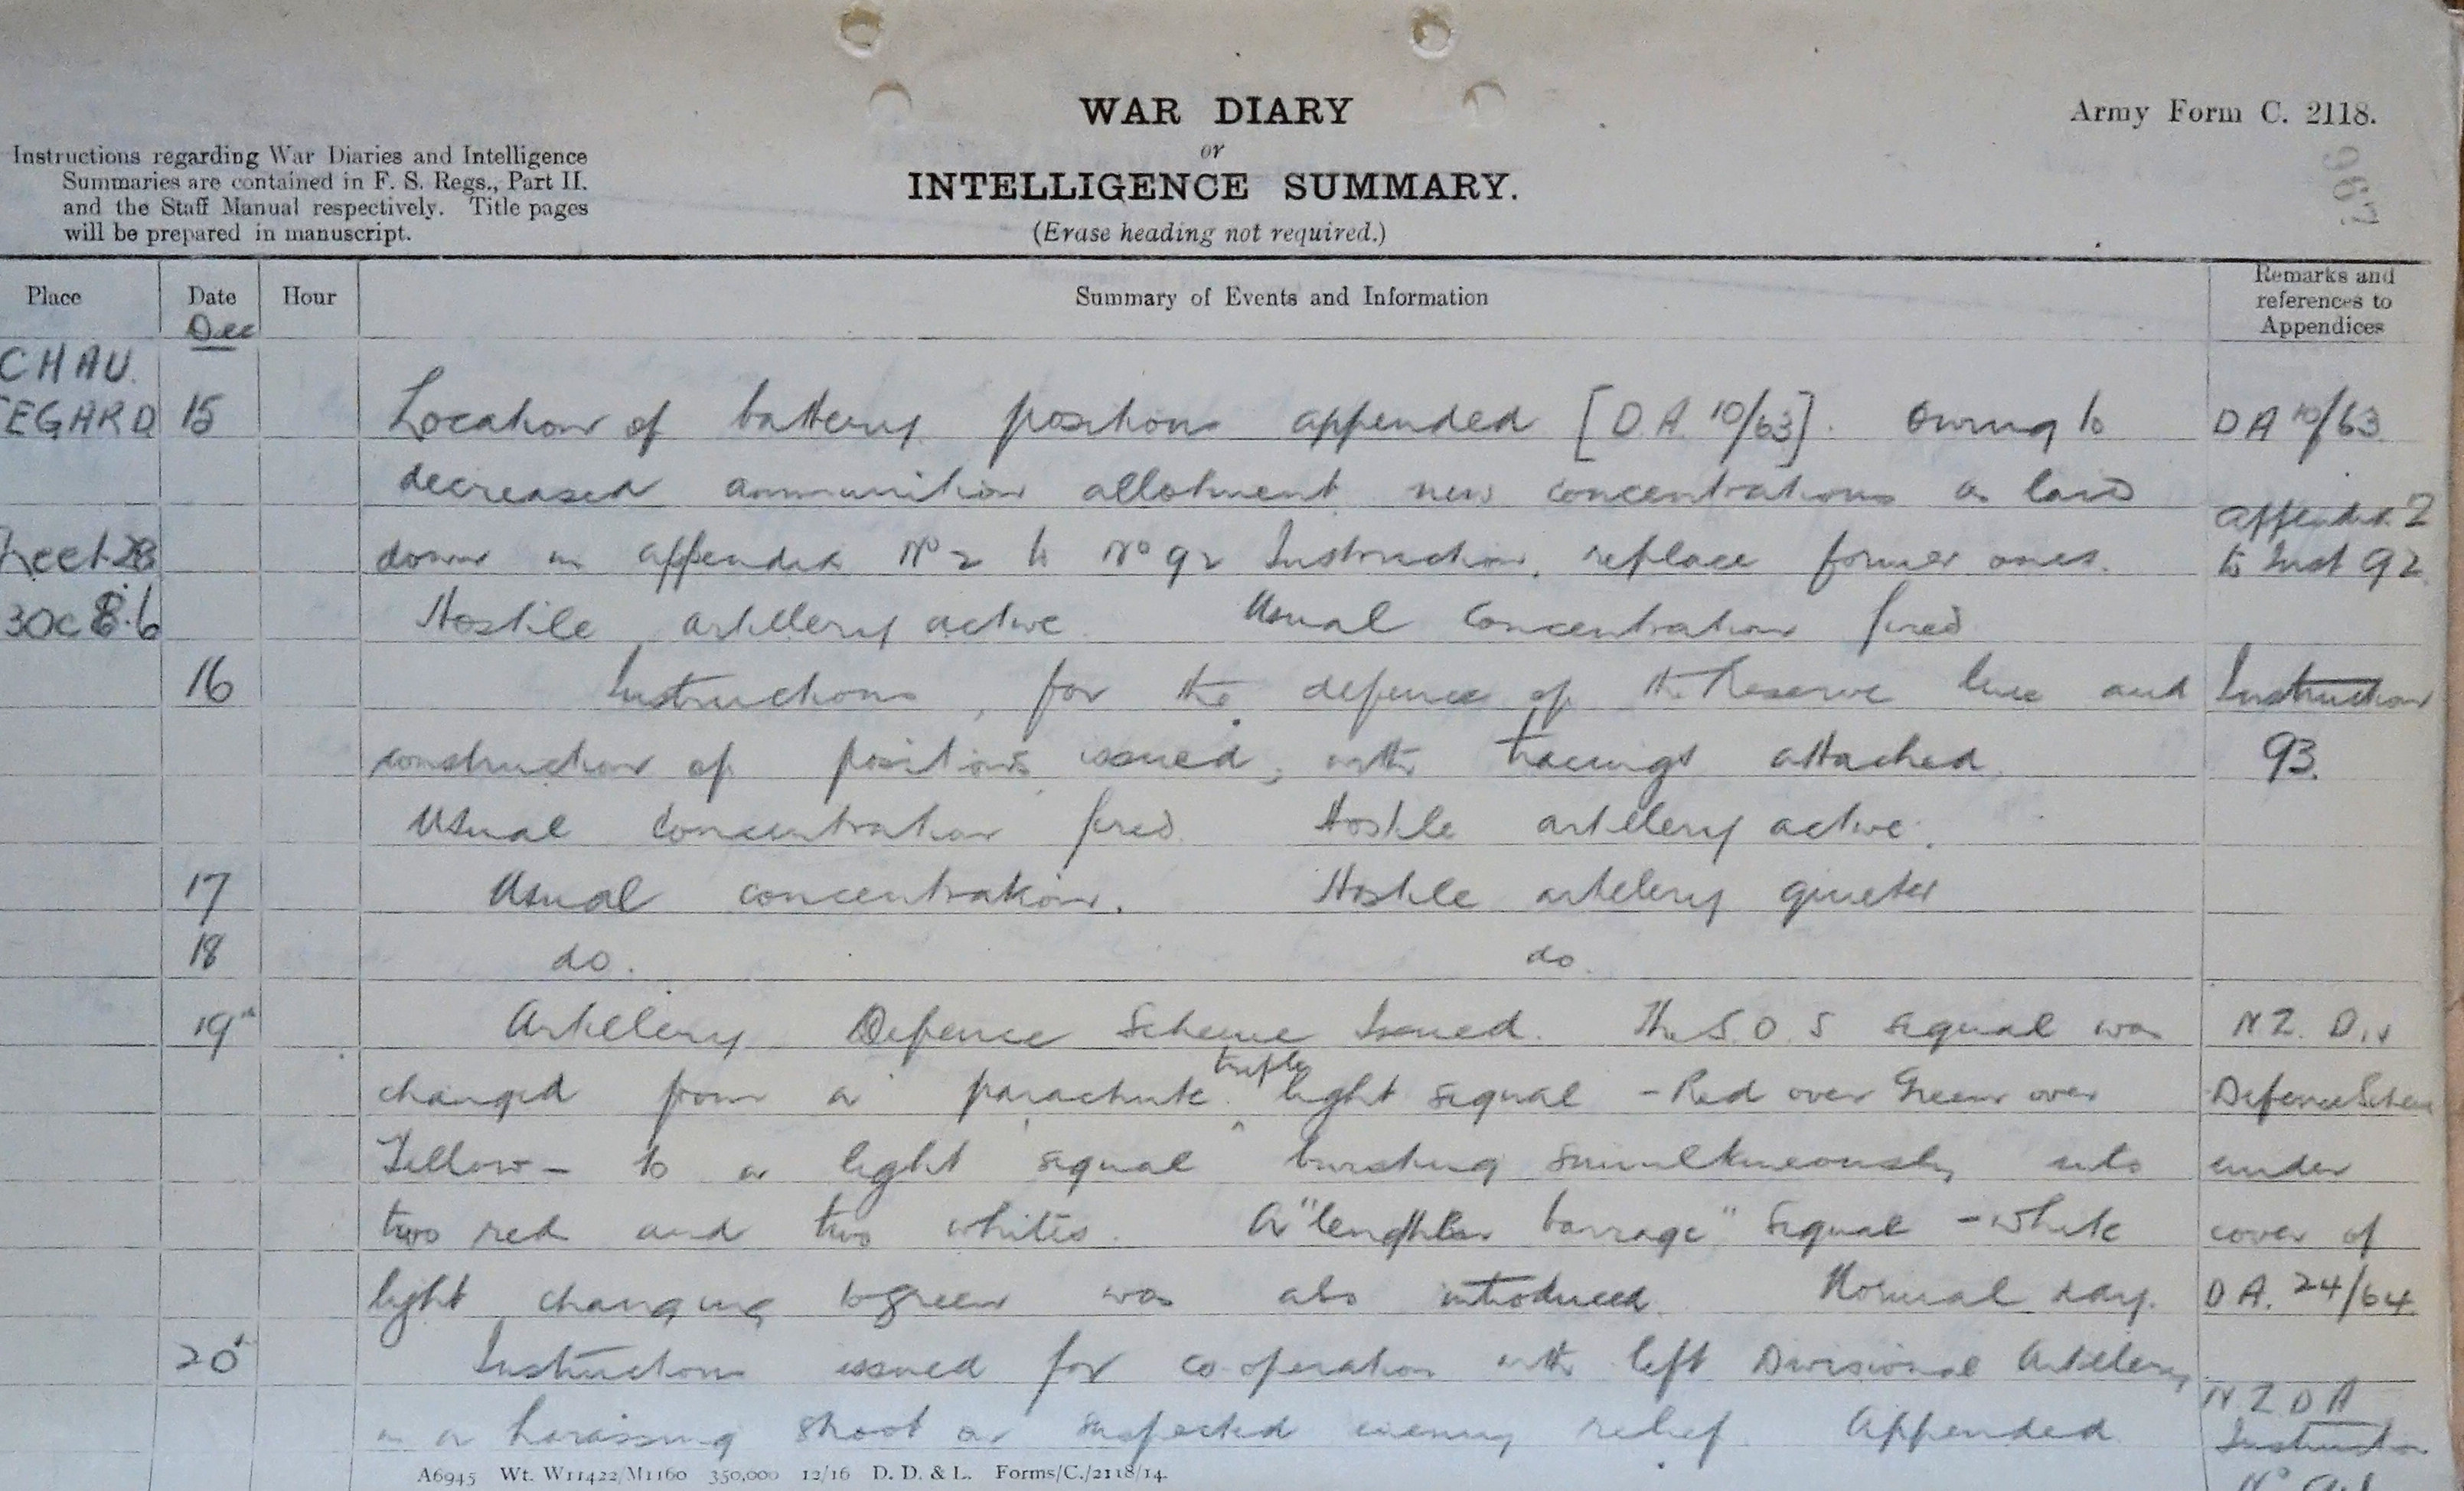 WAR DIARY
or
INTELLIGENCE SUMMARY.
(Erase heading not required.)
Army Form C. 2118.
Instructions regarding War Diaries and Intelligence
Summaries are contained in F. S. Regs., Part II.
and the Staff Manual respectively. Title pages
will be prepared in manuscript.
Place Date Hour Summary of Events and Information Remarks and references to Appendices
Dec
CHAU.
EGARD 15 Location of battery positions appended [D.A. 10/63]. Owing to DA 10/63
decreased ammunition allotment new concentrations as laid
Appendix 2
Sheet 28 down in appendix No 2 to No 92 Instruction, replace former ones. to Inst 92.
30c 8.6 Hostile artillery active. Usual concentration fired
16 Instructions, for the defence of the Reserve line and Instruction
construction of positions issued, with tracings attached. 93.
Usual concentration fired. Hostile artillery active.
17 Usual concentration. Hostile artillery quieter
18 do. do.
19th Artillery Defence Scheme Issued. The S.O.S signal was N Z. Div
changed from a parachute triple light signal - Red over Green over Defence Scheme
Yellow - to a light signal bursting simultaneously into under
two red and two whites. A "lengthen barrage" signal - white cover of
light changing to green was also introduced. Normal day. D A. 24/64
20 Instructions issued for co-operation with left Divisional Artillery
N Z D A
in a harassing shoot on suspected enemy relief. Appended Instruction
No
A6945 Wt. W11422/M1160 350,000 12/16 D. D. & L. Forms/C./2118/14.